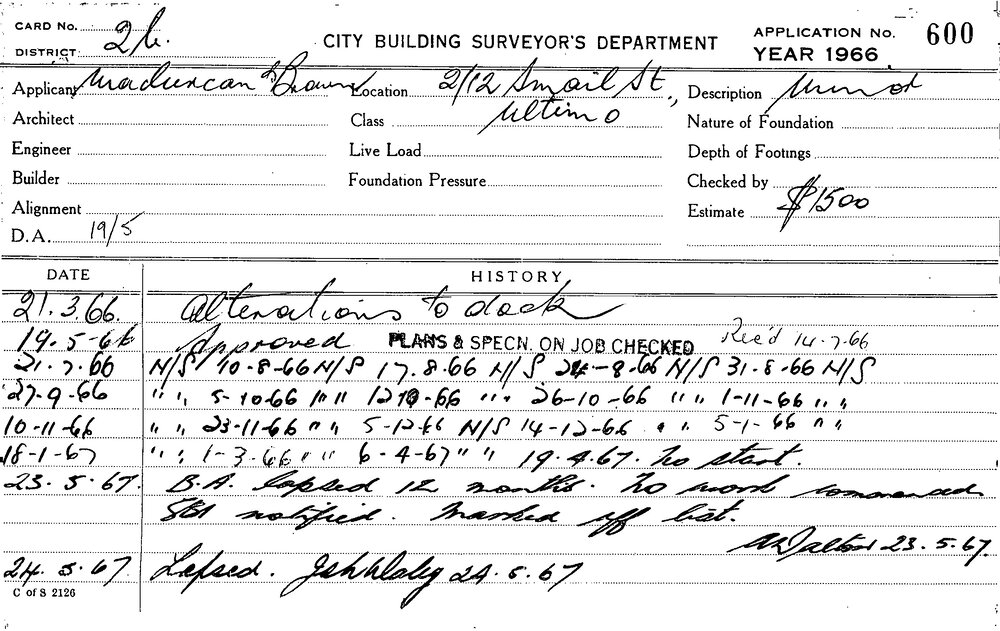 CARD No.
DISTRICT 2b.
CITY BUILDING SURVEYOR'S DEPARTMENT
APPLICATION No. 600
YEAR 1966
Applicant Location 2/12 Smail St., Description Minor
Architect Class Ultimo Nature of Foundation
Engineer Live Load Depth of Footings
Builder Foundation Pressure Checked by
Alignment Estimate $1500
D.A. 19/5
DATE HISTORY
21.3.66. Alterations to dock
19.5-66 Approved PLANS & SPECN. ON JOB CHECKED Rec'd 14.7.66
21.7.66 N/S 10-8-66 N/S 17.8.66 N/S 24-8-66 N/S 31.8.66 N/S
27-9-66 " " 5-10-66 " " 12-10-66 " " 26-10-66 " " 1-11-66 " "
10-11-66 " " 23-11-66 " " 5-12-66 N/S 14-12-66 " " 5-1-66 " "
18-1-67 " " 1-3-66 " " 6-4-67 " " 19.4.67. No start.
23.5.67. B.A. lapsed 12 months. No work commenced
SBI notified. Marked off list.
23.5.67.
24.5.67 Lapsed. 24.5.67
C of S 2126